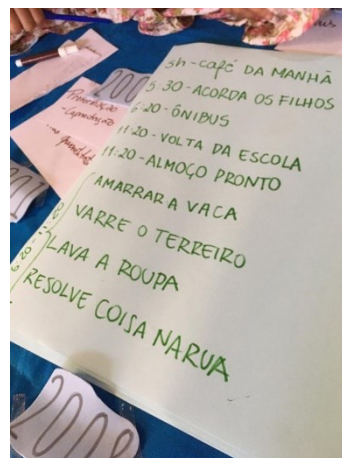 5h - CAFÉ DA MANHÃ
5:30 - ACORDA OS FILHOS
6:20 - ÔNIBUS
11:20 - VOLTA DA ESCOLA
11:20 - ALMOÇO PRONTO
AMARRAR A VACA
VARRE O TERREIRO
LAVA A ROUPA
RESOLVE COISA NA RUA
6:20 - 11:20
200
2008